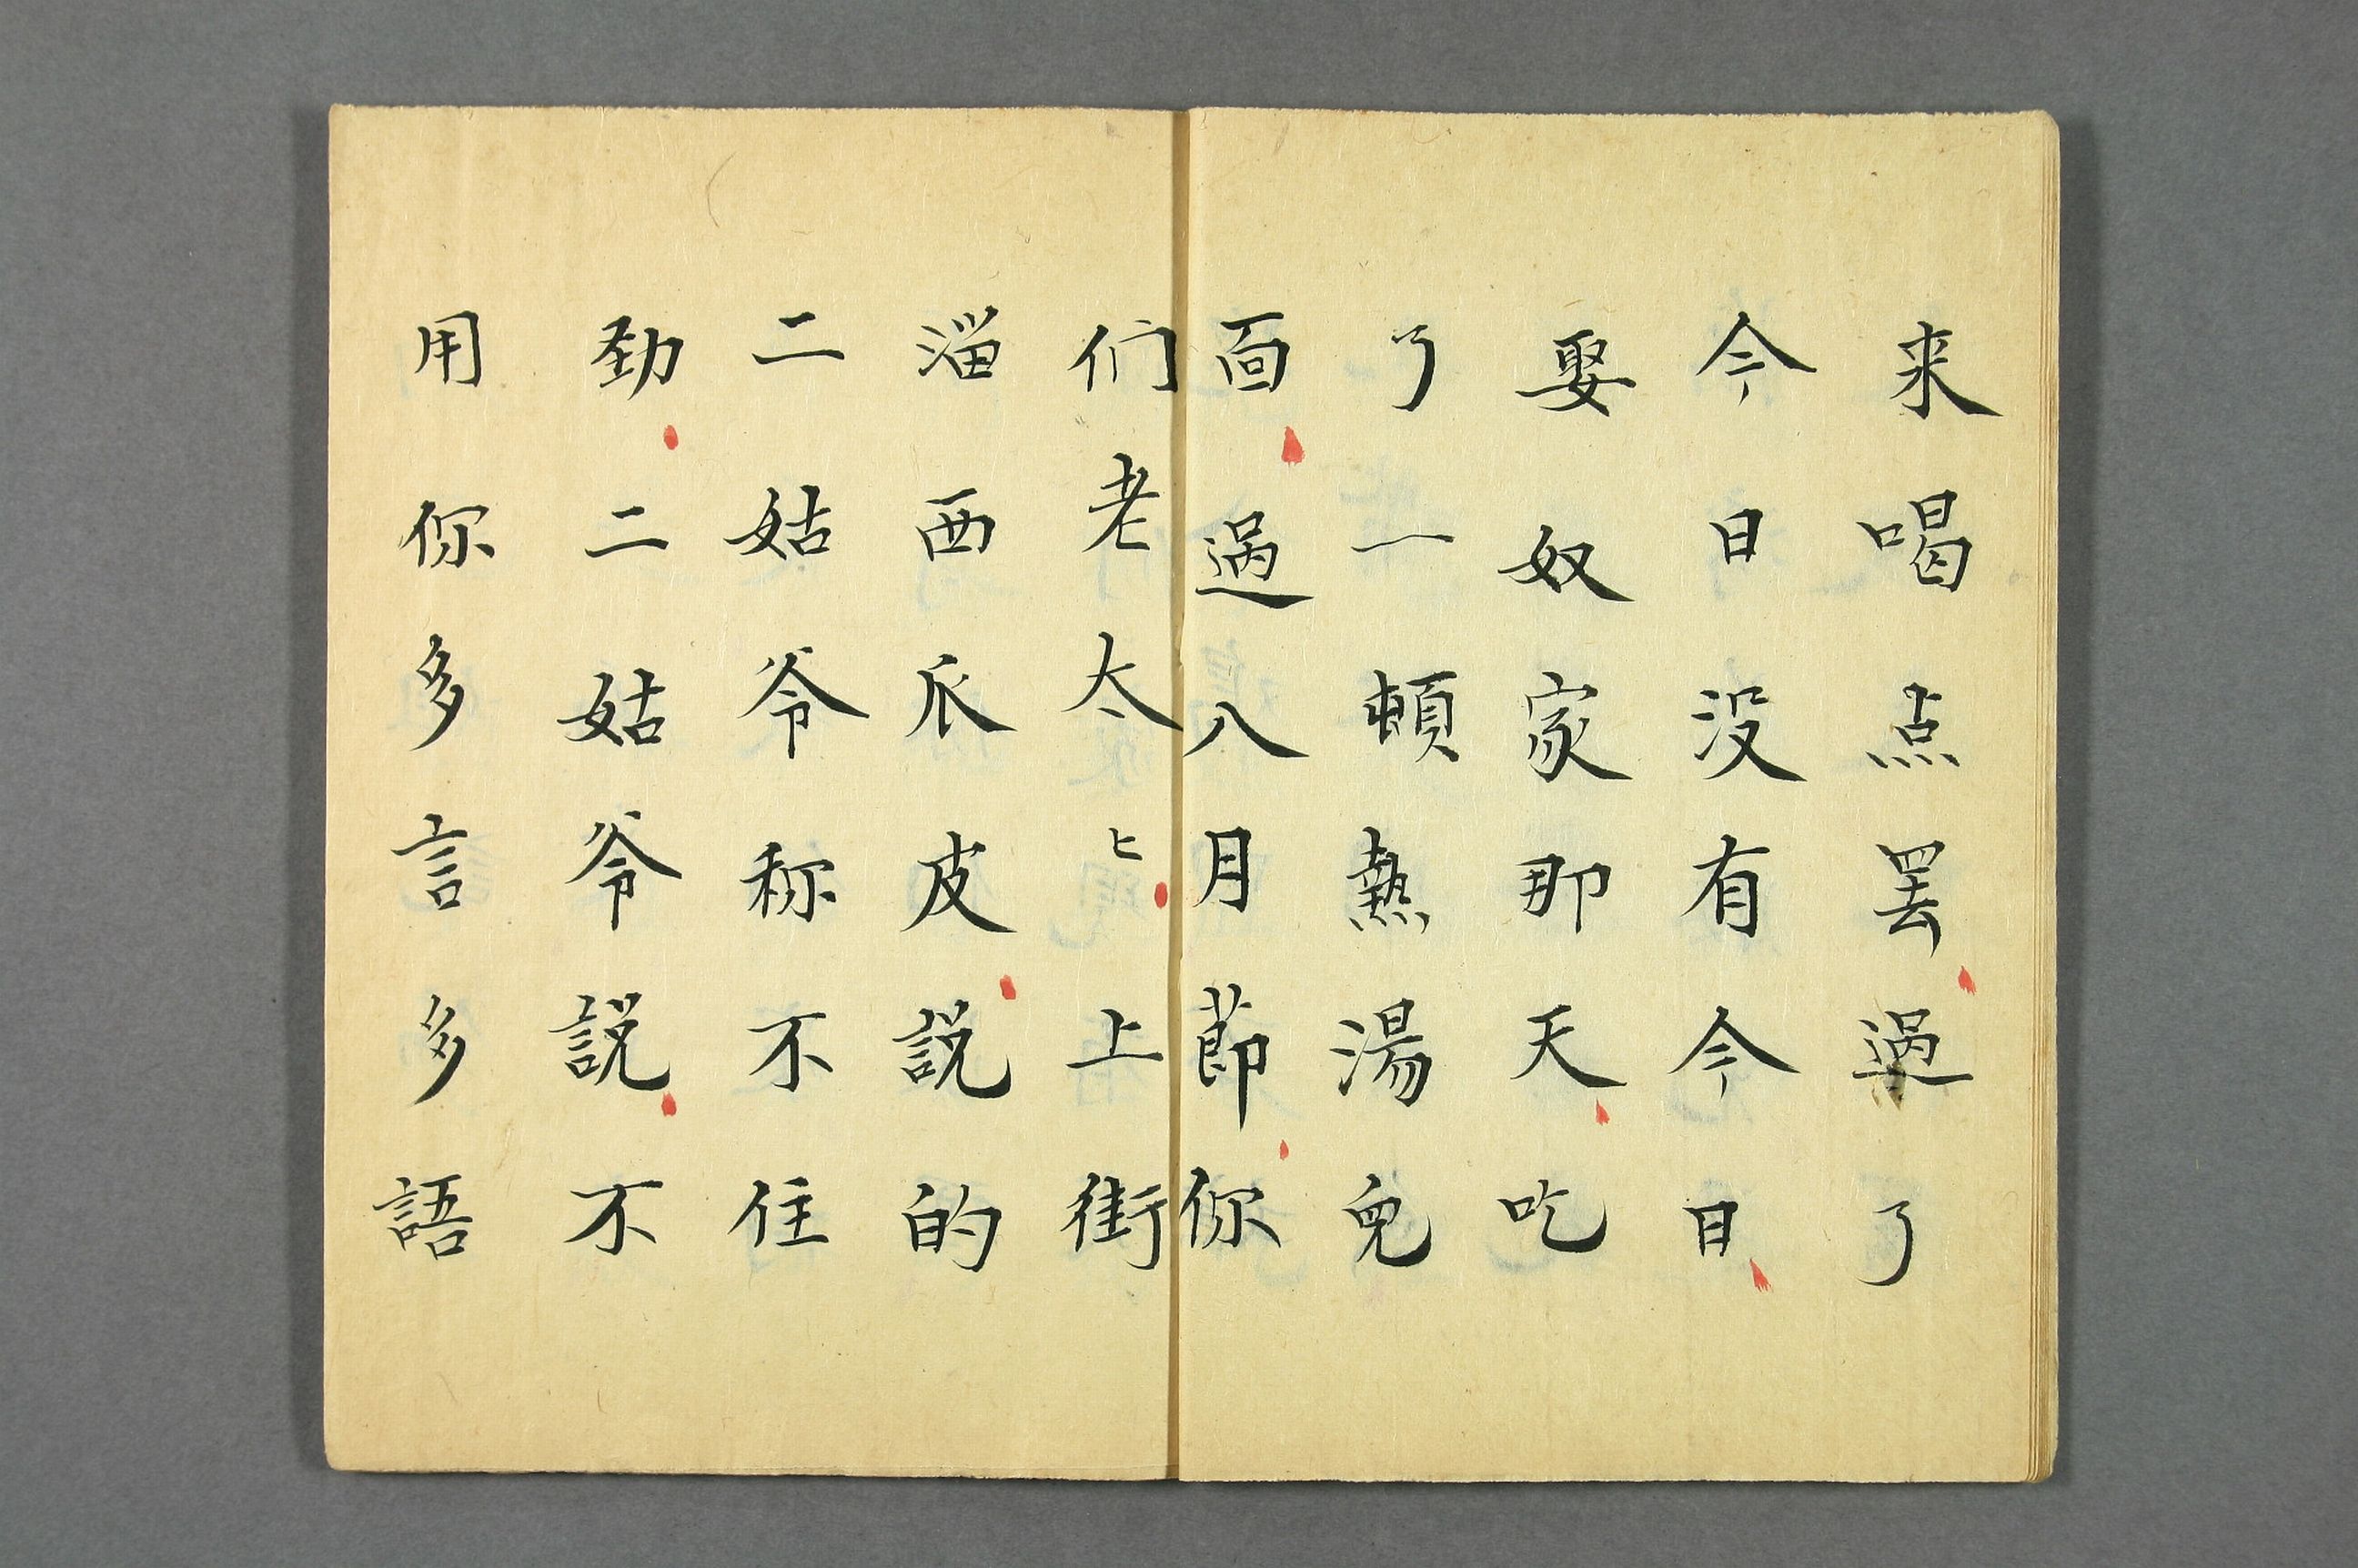 来喝点罢过了
今日没有今日
娶奴家那天吃
了一頓熱湯兒
面过八月節你
们老太匕上街
淄西瓜皮説的
二姑爷称不住
劲二姑爷説不
用你多言多語